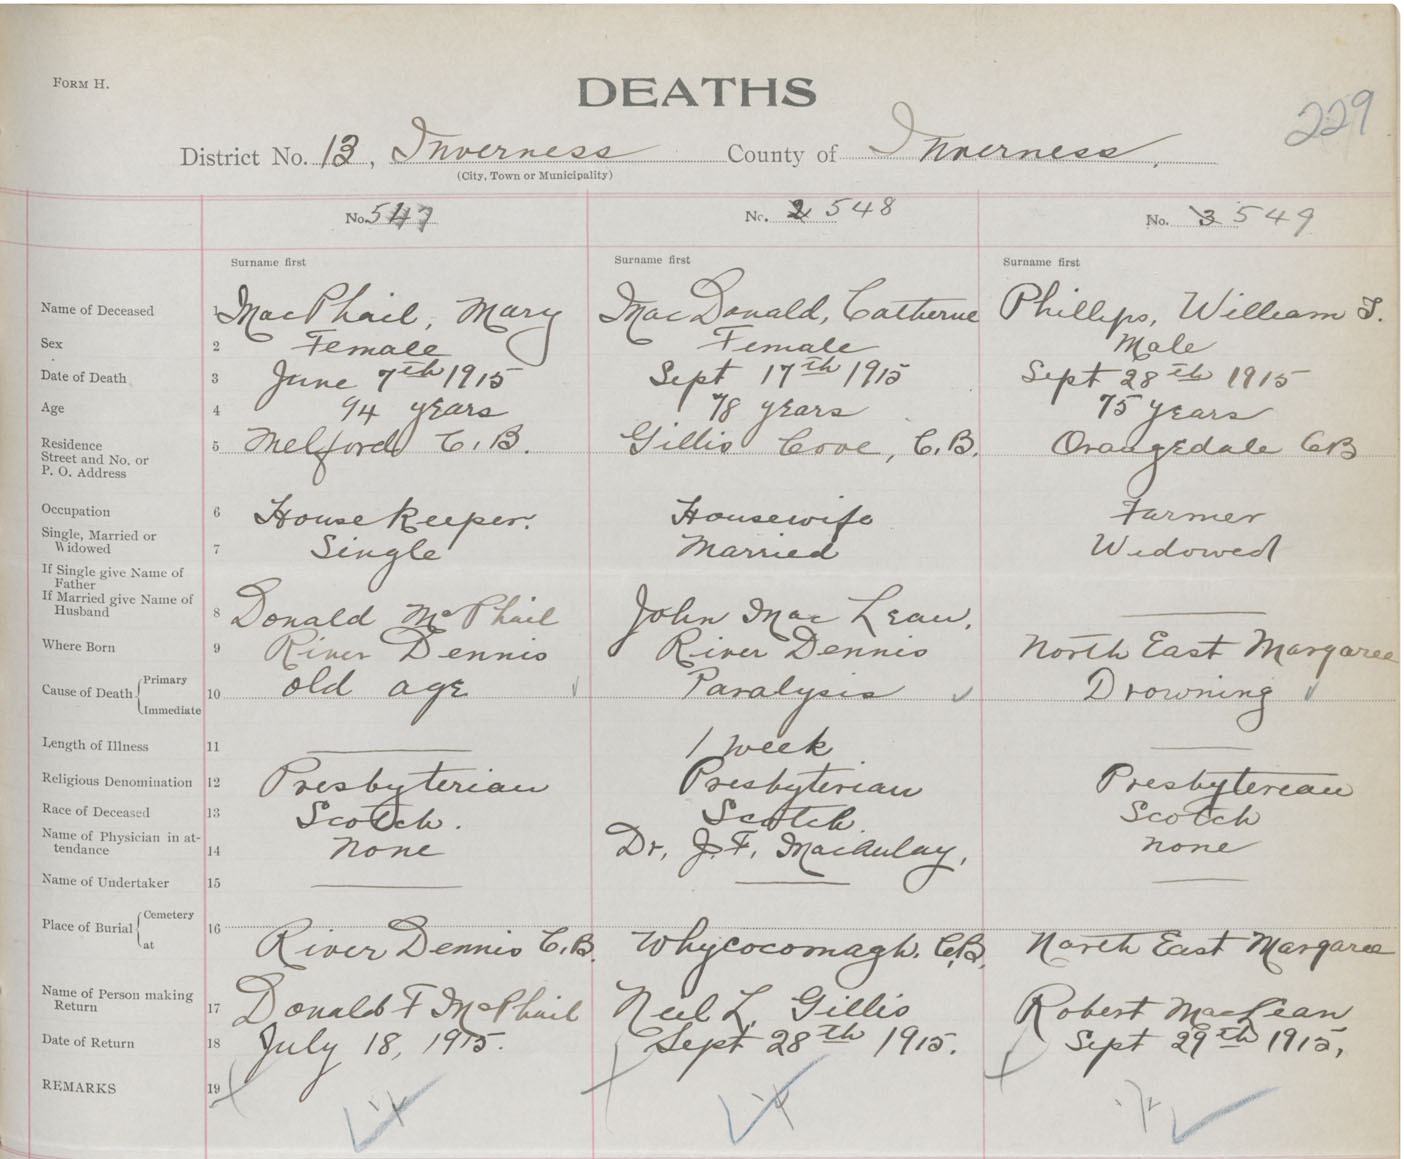 FORM H.
DEATHS
229
District No. 13, Inverness County of Inverness.
(City, Town or Municipality)
No. 547 No. 2 548 No. 3 549
Surname first Surname first Surname first
Name of Deceased 1 MacPhail, Mary MacDonald, Catherine Phillips, William
Sex 2 Female Female Male
Date of Death 3 June 7th 1915 Sept 17th 1915 Sept 28th 1915
Age 4 94 years 78 years 75 years
Residence
Street and No. or
P. O. Address 5 Melford C.B. Gillis Cove, C.B. Orangedale CB
Occupation 6 House Keeper. Housewife Farmer
Single, Married or
Widowed 7 Single Married Widowed
If Single give Name of
Father
If Married give Name of
Husband 8 Donald McPhail John Mac Lean.
Where Born 9 River Dennis River Dennis North East Margaree
Cause of Death Primary
Immediate 10 old age Paralysis Drowning
Length of Illness 11 1 week
Religious Denomination 12 Presbyterian Presbyterian Presbyterean
Race of Deceased 13 Scotch. Scotch. Scotch
Name of Physician in at-
tendance 14 None Dr. J.F. MacAulay, None
Name of Undertaker 15
Place of Burial Cemetery
at 16 River Dennis C.B. Whycocomagh. C.B. North East Margaree
Name of Person making
Return 17 Donald F McPhail Neil L. Gillis Robert MacLean
Date of Return 18 July 18, 1915. Sept 28th 1915. Sept 29th 1915,
REMARKS 19